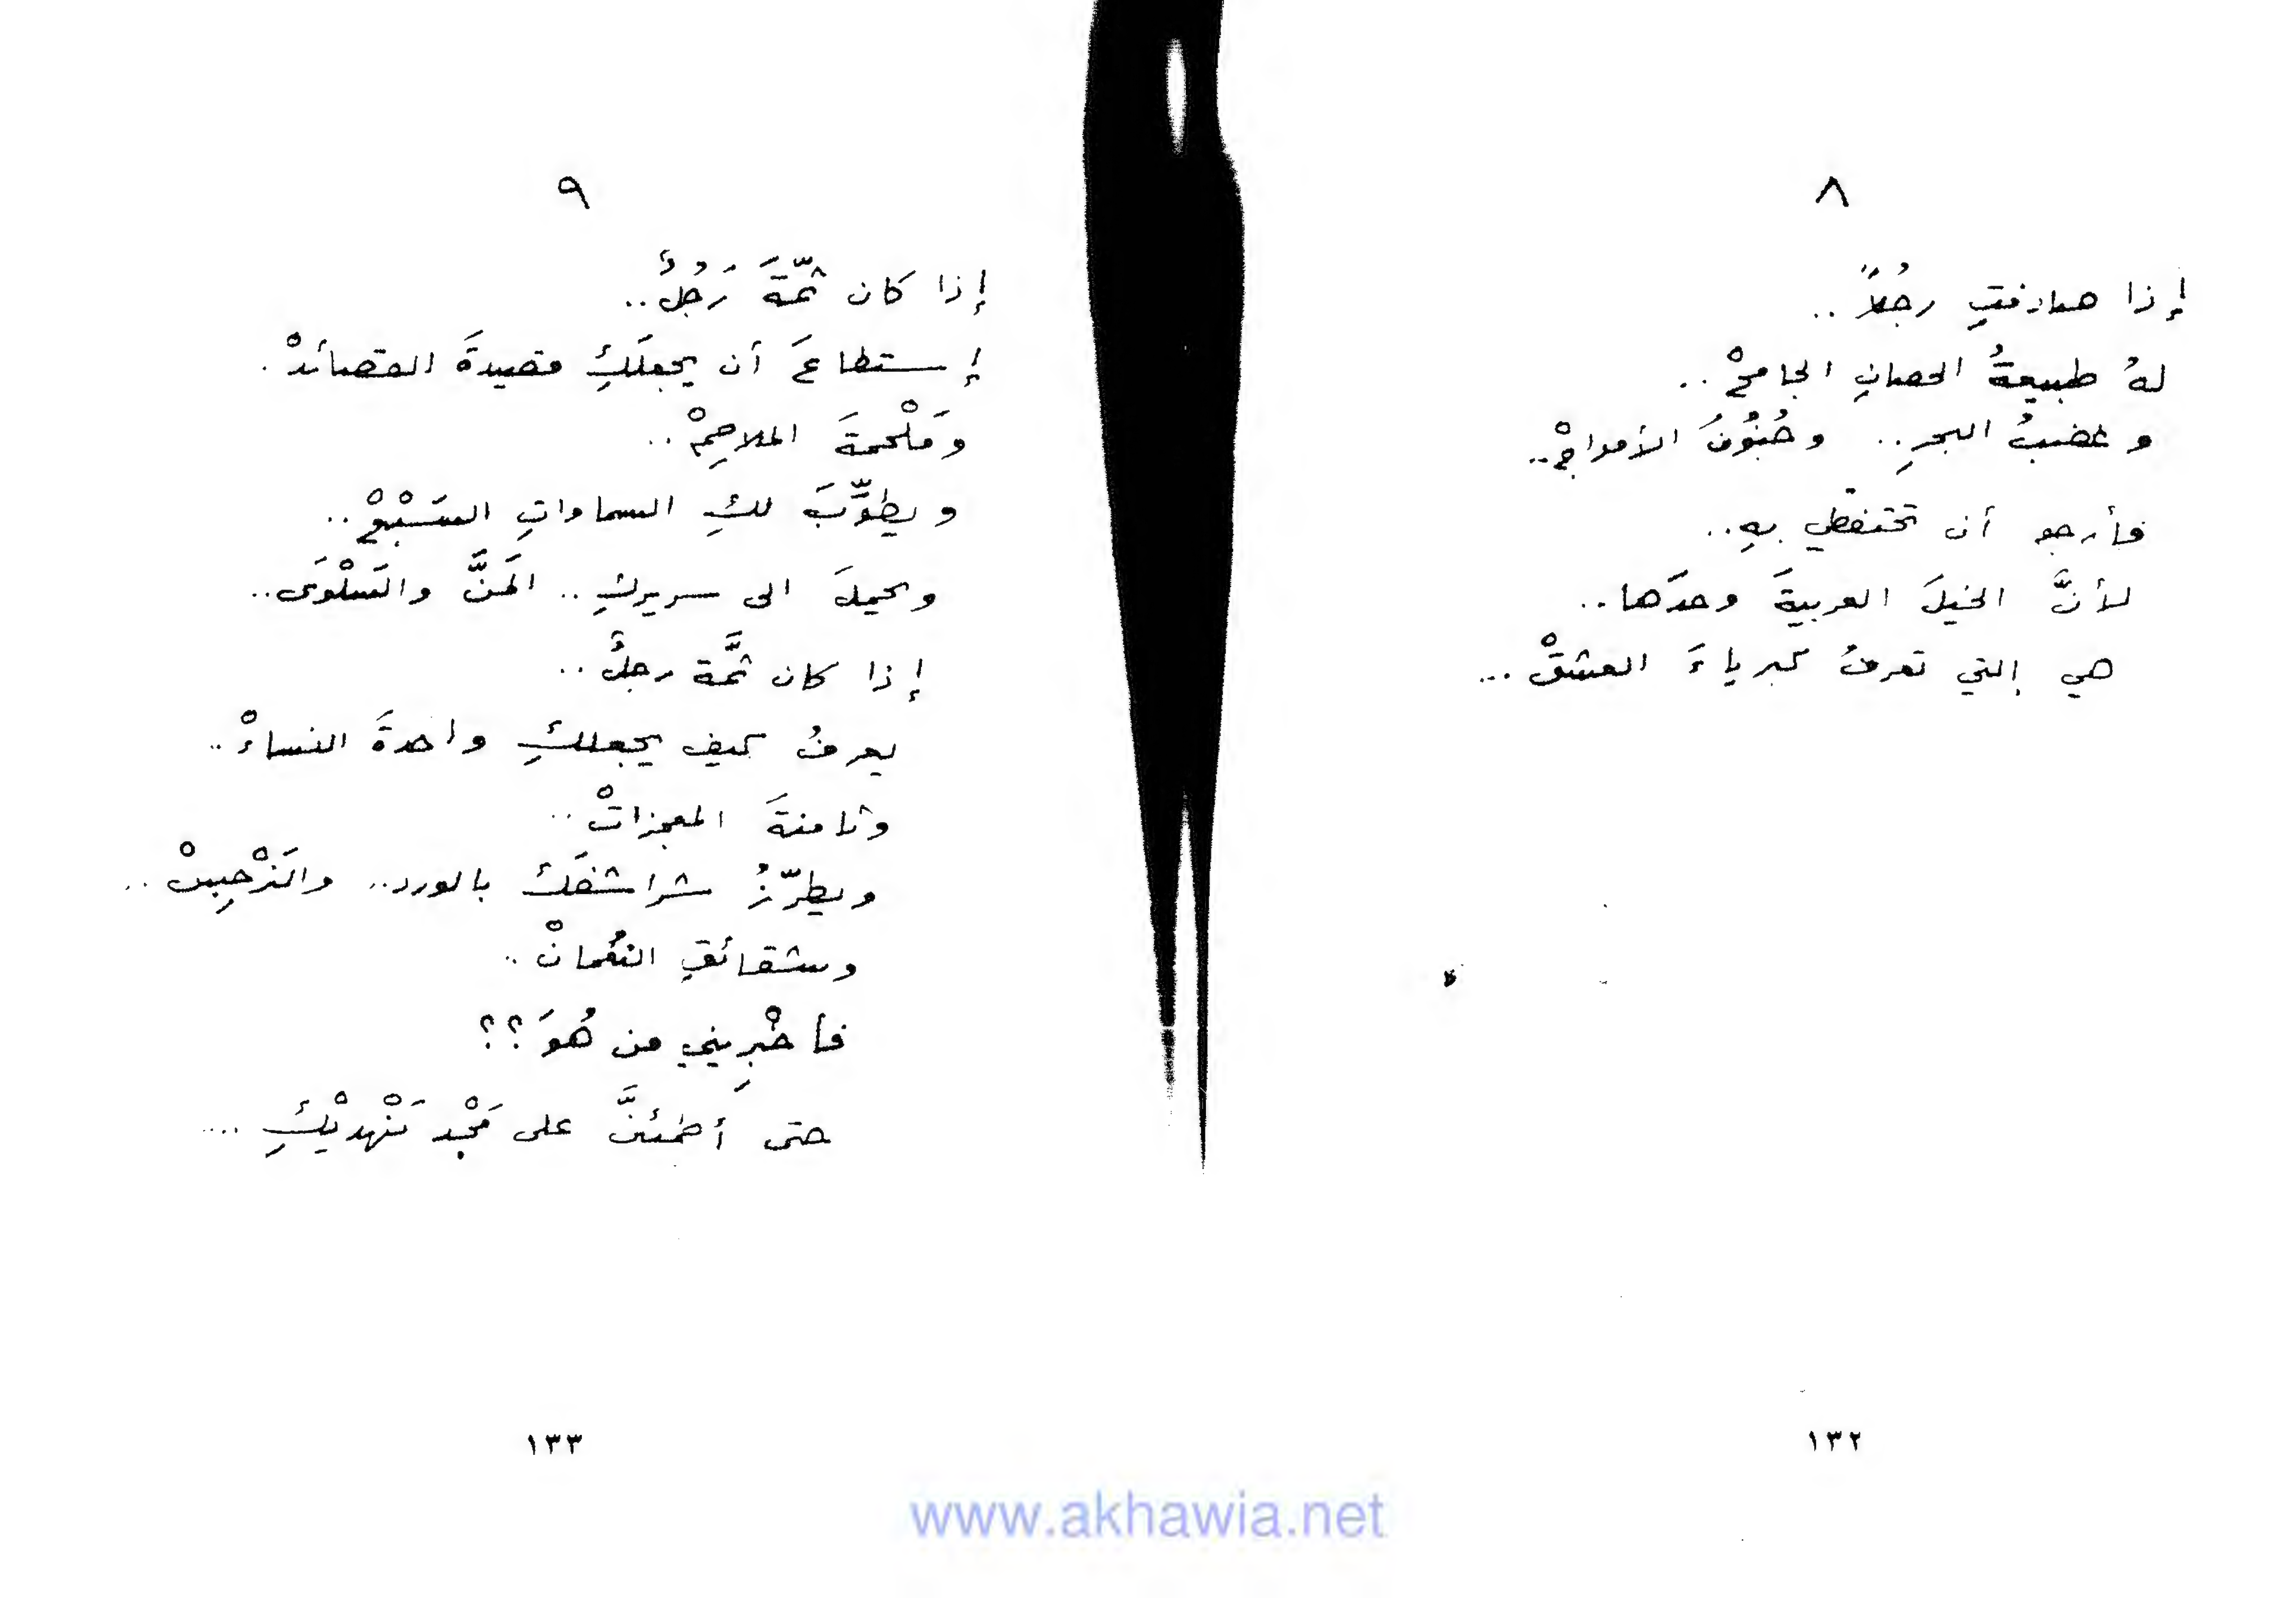 ٨
إذا صادفتِ رجُلاً ..
لهُ طبيعةُ الحصانِ الجامحْ ..
وغضبُ البحرِ .. وجُنُونُ الأمواجْ ..
فأرجو أن تحتفظي بهِ ..
لأنَّ الخيلَ العربيةَ وحدَها ..
هي التي تعرفُ كبرياءَ العشقْ ...
١٣٢
٩
إذا كان ثمّةَ رَجُلٌ ..
إستطاعَ أن يجعلَكِ قصيدةَ القصائدْ .
ومَلْحمةَ الملاحِمْ ..
ويطوِّبَ لكِ السماواتِ السَبْعْ ..
ويحملَ الى سريركِ .. المَنَّ والسَلْوَى ..
إذا كان ثمَّة رجلٌ ..
يعرفُ كيف يجعلكِ واحدةَ النساءْ ..
وثامنةَ المعجزاتْ ..
ويطرّزُ شراشفَك بالورد .. والنَرْجِسْ ..
وشقائقِ النُعْمانْ ..
فأخْبِريني من هُوَ ؟؟
حتى أطمئنَّ على مَجْد نَهْديْكِ ....
١٣٣
www.akhawia.net